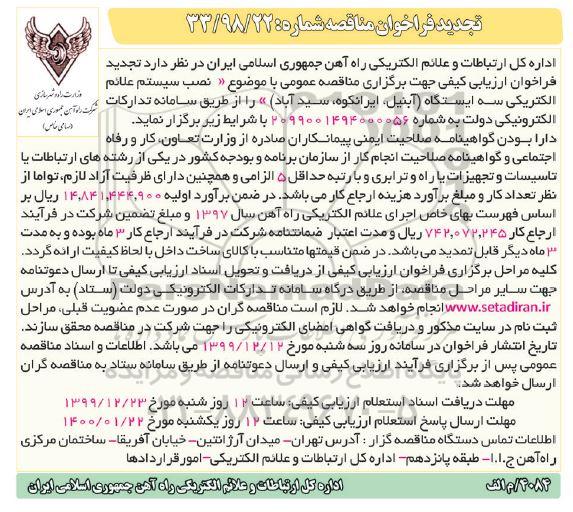 تجدید فراخوان مناقصه شماره: ۳۳/۹۸/۲۲
وزارت راه و شهرسازی
شرکت راه آهن جمهوری اسلامی ایران
(سهامی خاص)
اداره کل ارتباطات و علائم الکتریکی راه آهن جمهوری اسلامی ایران در نظر دارد تجدید
فراخوان ارزیابی کیفی جهت برگزاری مناقصه عمومی با موضوع « نصب سیستم علائم
الکتریکی سه ایستگاه (آبنیل، ایرانکوه، سید آباد)» را از طریق سامانه تدارکات
الکترونیکی دولت به شماره ۲۰۹۹۰۰۱۴۹۴۰۰۰۰۵۶ با شرایط زیر برگزار نماید.
دارا بودن گواهینامه صلاحیت ایمنی پیمانکاران صادره از وزارت تعاون، کار و رفاه
اجتماعی و گواهینامه صلاحیت انجام کار از سازمان برنامه و بودجه کشور در یکی از رشته های ارتباطات یا
تاسیسات و تجهیزات یا راه و ترابری و با رتبه حداقل ۵ الزامی و همچنین دارای ظرفیت آزاد لازم، تواما از
نظر تعداد کار و مبلغ برآورد هزینه ارجاع کار می باشد. در ضمن برآورد اولیه ۱۴,۸۴۱,۴۴۴,۹۰۰ ریال بر
اساس فهرست بهای خاص اجرای علائم الکتریکی راه آهن سال ۱۳۹۷ و مبلغ تضمین شرکت در فرآیند
ارجاع کار ۷۴۲,۰۷۲,۲۴۵ ریال و مدت اعتبار ضمانتنامه شرکت در فرآیند ارجاع کار ۳ ماه بوده و به مدت
۳ ماه دیگر قابل تمدید می باشد. در ضمن قیمتها متناسب با کالای ساخت داخل با لحاظ کیفیت ارائه گردد.
کلیه مراحل برگزاری فراخوان ارزیابی کیفی از دریافت و تحویل اسناد ارزیابی کیفی تا ارسال دعوتنامه
جهت سایر مراحل مناقصه، از طریق درگاه سامانه تدارکات الکترونیکی دولت (ستاد) به آدرس
www.setadiran.ir انجام خواهد شد. لازم است مناقصه گران در صورت عدم عضویت قبلی، مراحل
ثبت نام در سایت مذکور و دریافت گواهی امضای الکترونیکی را جهت شرکت در مناقصه محقق سازند.
تاریخ انتشار فراخوان در سامانه روز سه شنبه مورخ ۱۳۹۹/۱۲/۱۲ می باشد. اطلاعات و اسناد مناقصه
عمومی پس از برگزاری فرآیند ارزیابی کیفی و ارسال دعوتنامه از طریق سامانه ستاد به مناقصه گران
ارسال خواهد شد.
مهلت دریافت اسناد استعلام ارزیابی کیفی: ساعت ۱۲ روز شنبه مورخ ۱۳۹۹/۱۲/۲۳
مهلت ارسال پاسخ استعلام ارزیابی کیفی: ساعت ۱۲ روز یکشنبه مورخ ۱۴۰۰/۰۱/۲۲
اطلاعات تماس دستگاه مناقصه گزار: آدرس تهران- میدان آرژانتین- خیابان آفریقا- ساختمان مرکزی
راه آهن ج.ا.ا- طبقه پانزدهم- اداره کل ارتباطات و علائم الکتریکی- امور قراردادها
۴۰۸۴/م الف
اداره کل ارتباطات و علائم الکتریکی راه آهن جمهوری اسلامی ایران